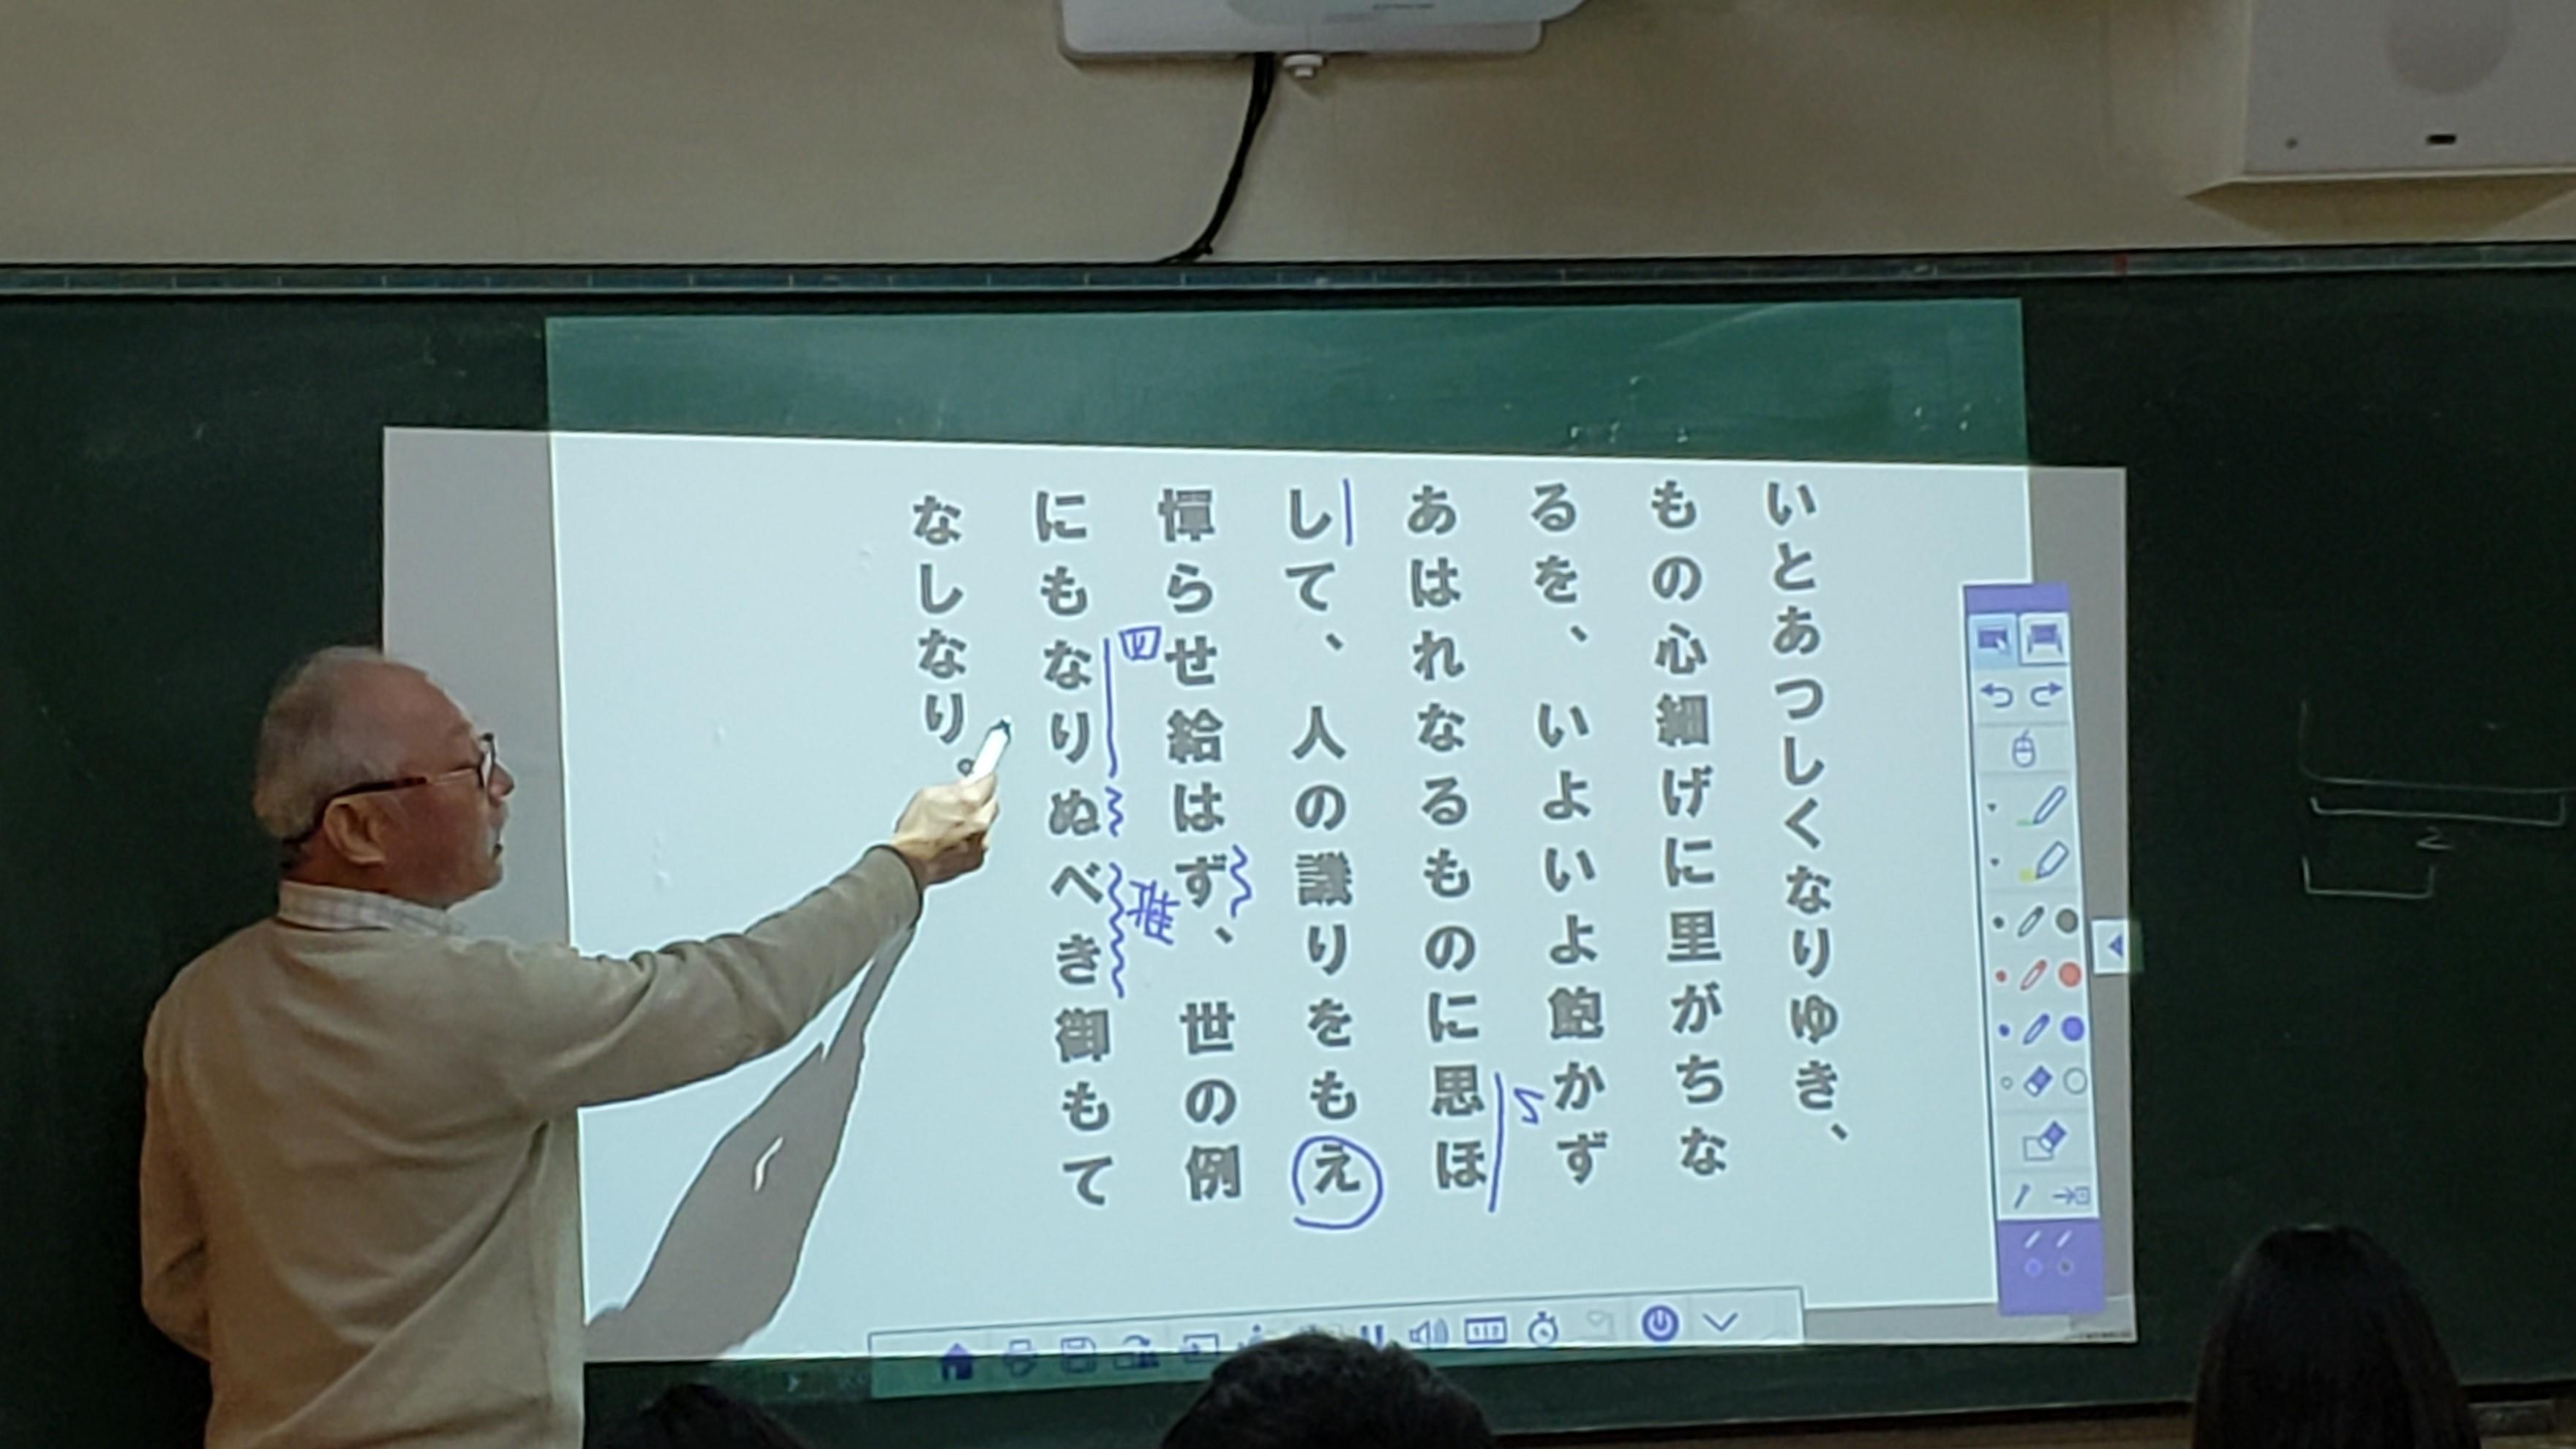 いとあつしくなりゆき、
もの心細げに里がちな
るを、いよいよ飽かず
あはれなるものに思ほ
して、人の譏りをもえ
憚らせ給はず、世の例
にもなりぬべき御もて
なしなり。
四
2